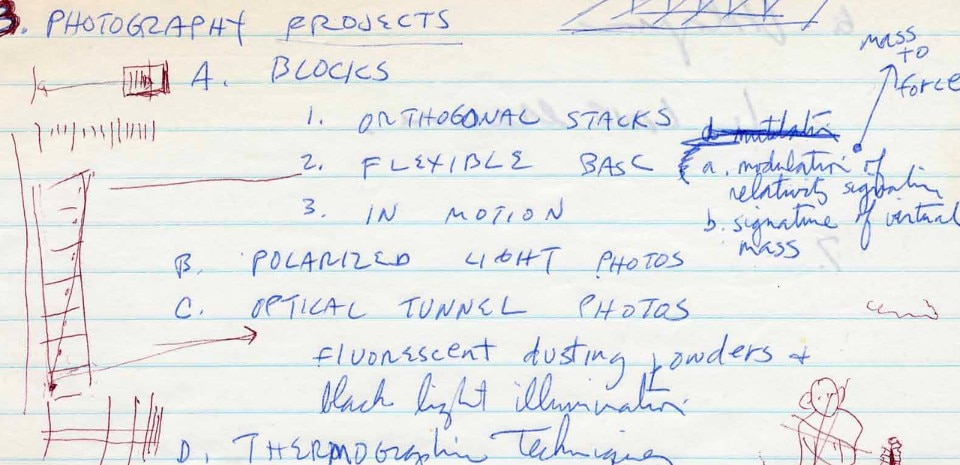 3. PHOTOGRAPHY PROJECTS
A. BLOCKS
1. ORTHOGONAL STACKS
2. FLEXIBLE BASE
a. modulation of
relativity
b. signature of virtual
mass
mass
to
force
3. IN MOTION
B. POLARIZED LIGHT PHOTOS
C. OPTICAL TUNNEL PHOTOS
fluorescent dusting powders +
black light illumination
D. THERMOgraphic Techniques